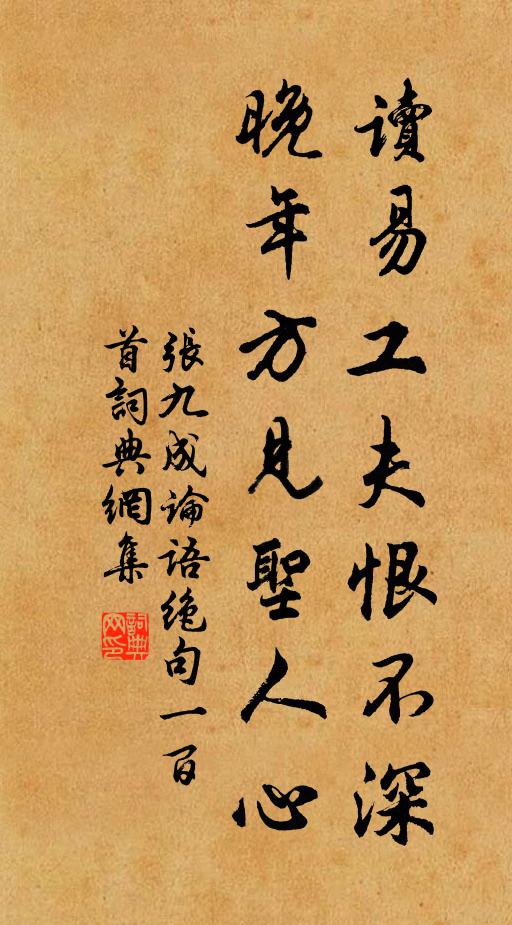 讀易工夫恨不深
晚年方見聖人心
張九成論語絶句一百
首詞典網集
詞典网印